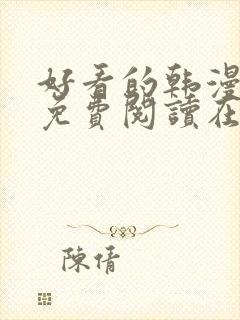 好看的韩漫
免費閱讀在
陳倩